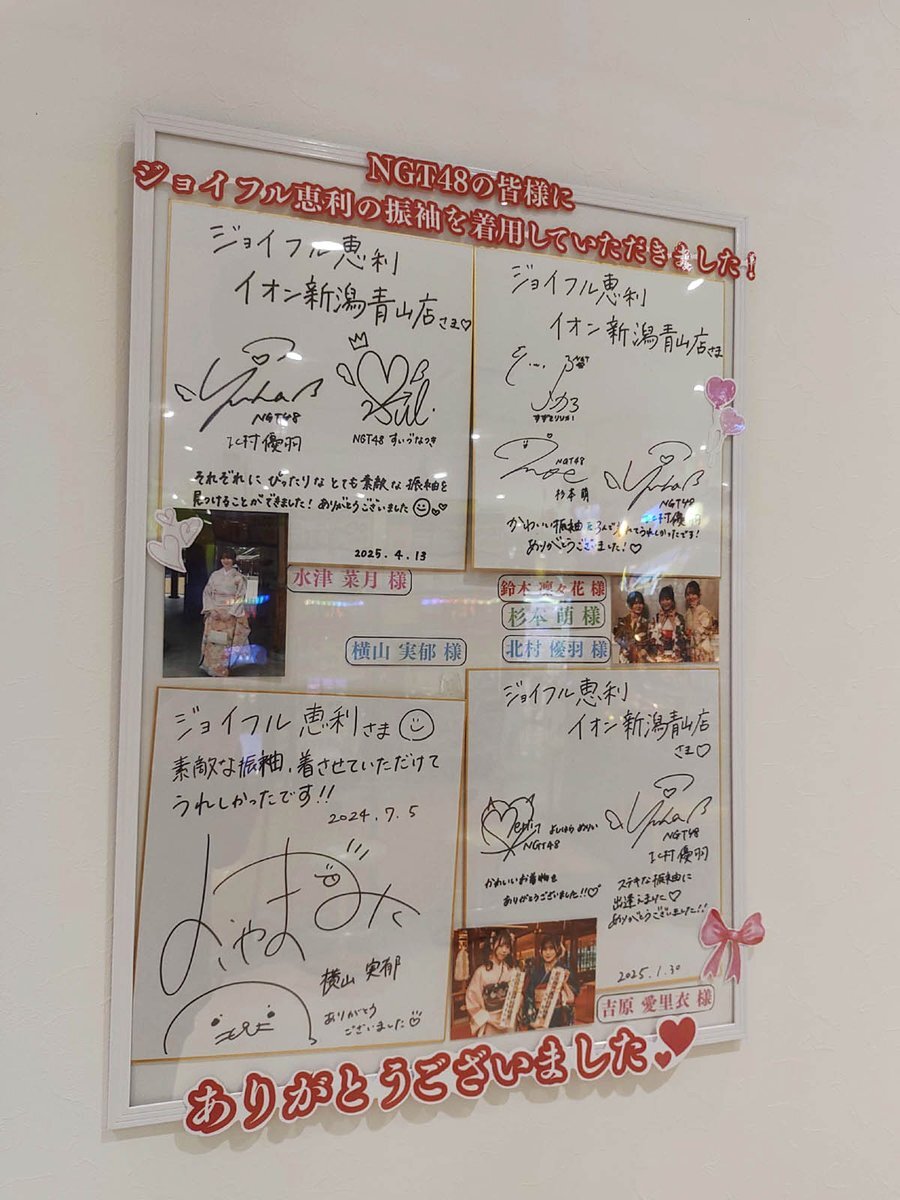 NGT48の皆様に
ジョイフル恵利の振袖を着用していただきました！
ジョイフル恵利
イオン新潟青山店さま♡
NGT48
北村優羽
NGT48 すいづなつき
それぞれに ぴったりな とても素敵な 振袖を
見つけることができました！ ありがとうございました
2025.4.13
水津 菜月 様
ジョイフル恵利
イオン新潟青山店さま
NGT48
すずきりりか
NGT48
杉本萌
NGT48
北村優羽
かわいい振袖を
うれしかったです！
ありがとうございました！♡
鈴木 凛々花 様
杉本 萌 様
北村 優羽 様
横山 実郁 様
ジョイフル恵利さま
素敵な振袖、着させていただけて
うれしかったです!!
2024.7.5
横山実郁
ありがとう
ございました
ジョイフル恵利
イオン新潟青山店
さま♡
よしはら めりい
NGT48
かわいいお着物を
ありがとうございました!!♡
NGT48
北村優羽
ステキな振袖に
出逢えました♡
ありがとうございました!!
2025.1.30
吉原 愛里衣 様
ありがとうございました♥